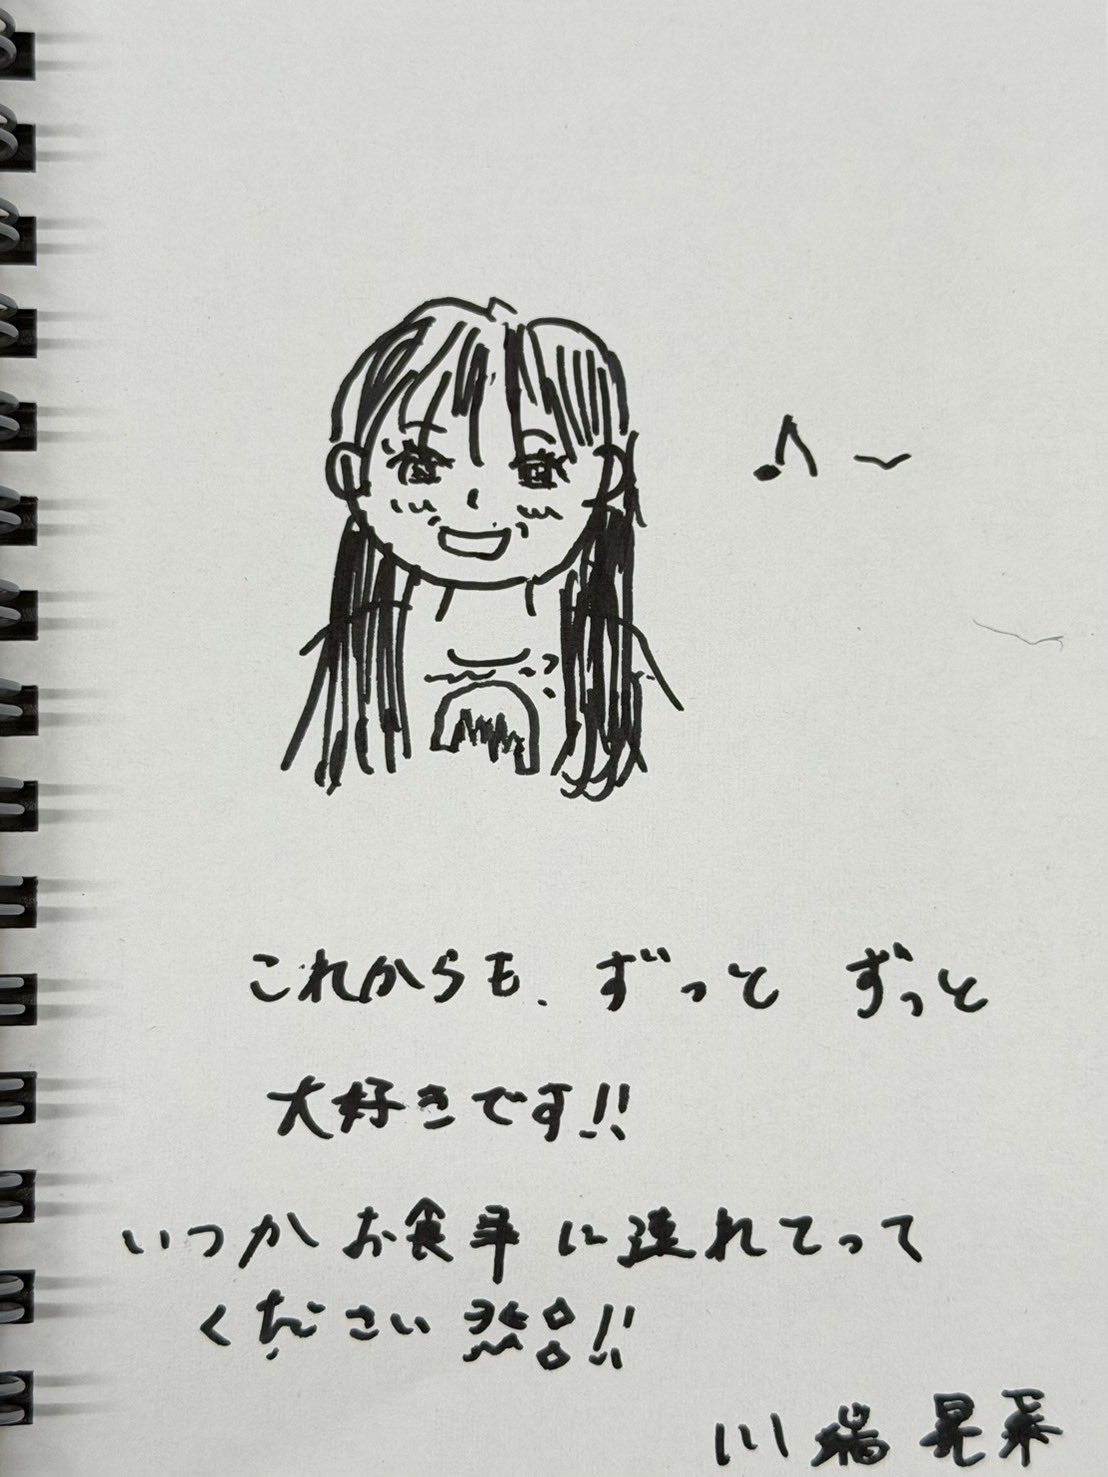 ♪〜
これからも、ずっと ずっと
大好きです!!
いつかお食事に連れてって
ください!!
川端晃菜